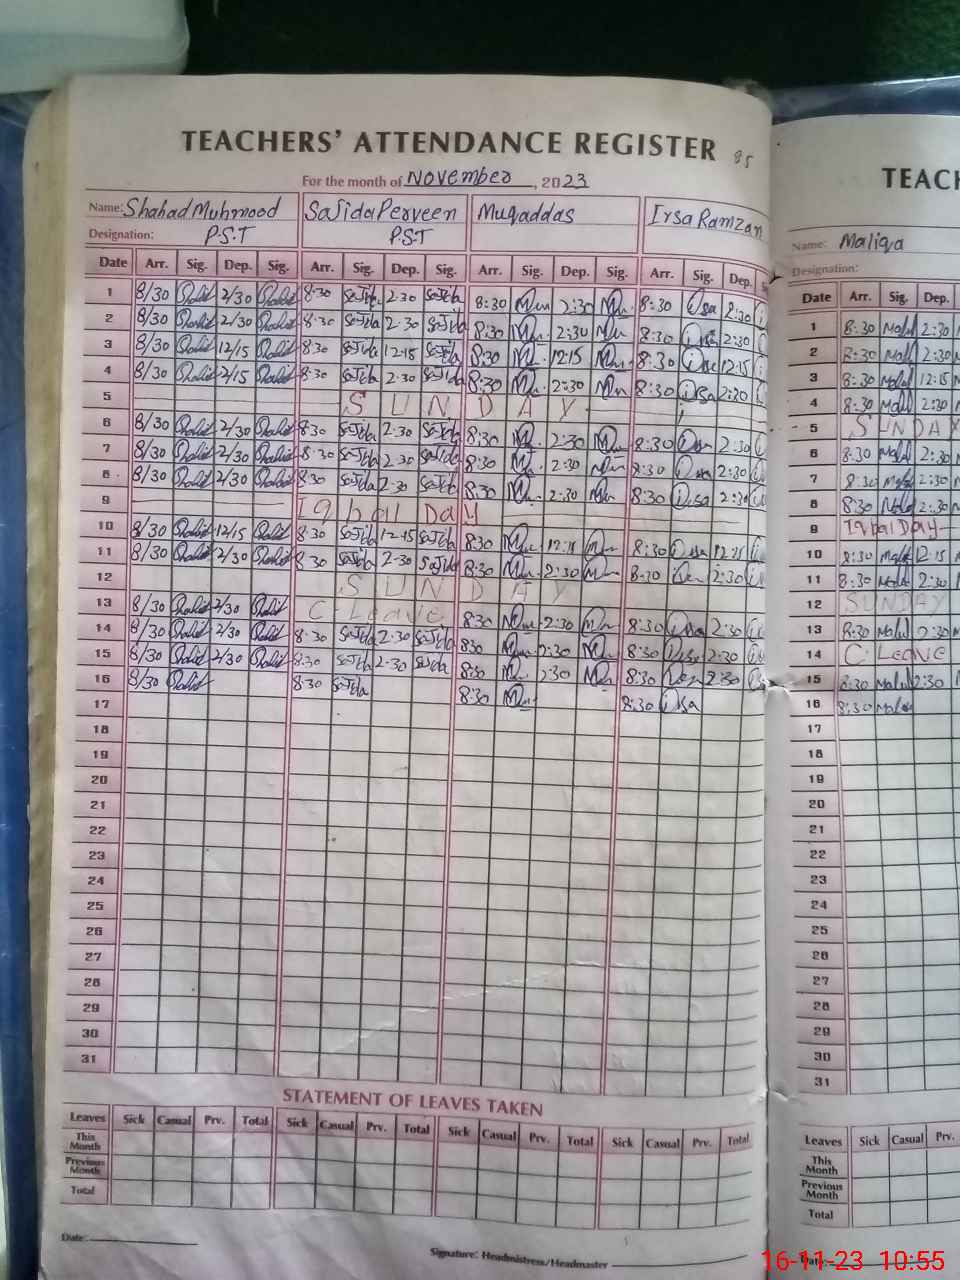 TEACHERS' ATTENDANCE REGISTER 85
For the month of November, 2023
Name: Shahad Muhmood Sajida Perveen Muqaddas Irsa Ramzan
Designation: P.S.T P.S.T
Date Arr. Sig. Dep. Sig. Arr. Sig. Dep. Sig. Arr. Sig. Dep. Sig. Arr. Sig. Dep.
1 8/30 2/30 8:30 Sajida 2:30 Sajida 8:30 2:30 8:30 2:30
2 8/30 2/30 8:30 Sajida 2:30 Sajida 8:30 2:30 8:30 2:30
3 8/30 12/15 8:30 Sajida 12:15 Sajida 8:30 12:15 8:30 12:15
4 8/30 2/15 8:30 Sajida 2:30 Sajida 8:30 2:30 8:30 2:30
5 SUNDAY
6 8/30 2/30 8:30 Sajida 2:30 Sajida 8:30 2:30 8:30 2:30
7 8/30 2/30 8:30 Sajida 2:30 Sajida 8:30 2:30 8:30 2:30
8 8/30 2/30 8:30 Sajida 2:30 Sajida 8:30 2:30 8:30 2:30
9 Iqball Day
10 8/30 12/15 8:30 Sajida 12:15 Sajida 8:30 12:15 8:30 12:15
11 8/30 2/30 8:30 Sajida 2:30 Sajida 8:30 2:30 8:30 2:30
12 SUNDAY
13 8/30 2/30 C-Leave 8:30 2:30 8:30 2:30
14 8/30 2/30 8:30 Sajida 2:30 Sajida 8:30 2:30 8:30 2:30
15 8/30 2/30 8:30 Sajida 2:30 Sajida 8:30 2:30 8:30 2:30
16 8/30 8:30 Sajida 8:30 8:30
17
18
19
20
21
22
23
24
25
26
27
28
29
30
31
STATEMENT OF LEAVES TAKEN
Leaves Sick Casual Prv. Total Sick Casual Prv. Total Sick Casual Prv. Total Sick Casual Prv. Total
This Month
Previous Month
Total
Date:
Signature: Headmistress/Headmaster
TEACH
Name: Maliqa
Designation:
Date Arr. Sig. Dep.
1 8:30 2:30
2 8:30 2:30
3 8:30 12:15
4 8:30 2:30
5 SUNDAY
6 8:30 2:30
7 8:30 2:30
8 8:30 2:30
9 Iqbal Day
10 8:30 12:15
11 8:30 2:30
12 SUNDAY
13 8:30 2:30
14 C-LEAVE
15 8:30 2:30
16 8:30
17
18
19
20
21
22
23
24
25
26
27
28
29
30
31
Leaves Sick Casual Prv.
This Month
Previous Month
Total
Date:
16-11-23 10:55